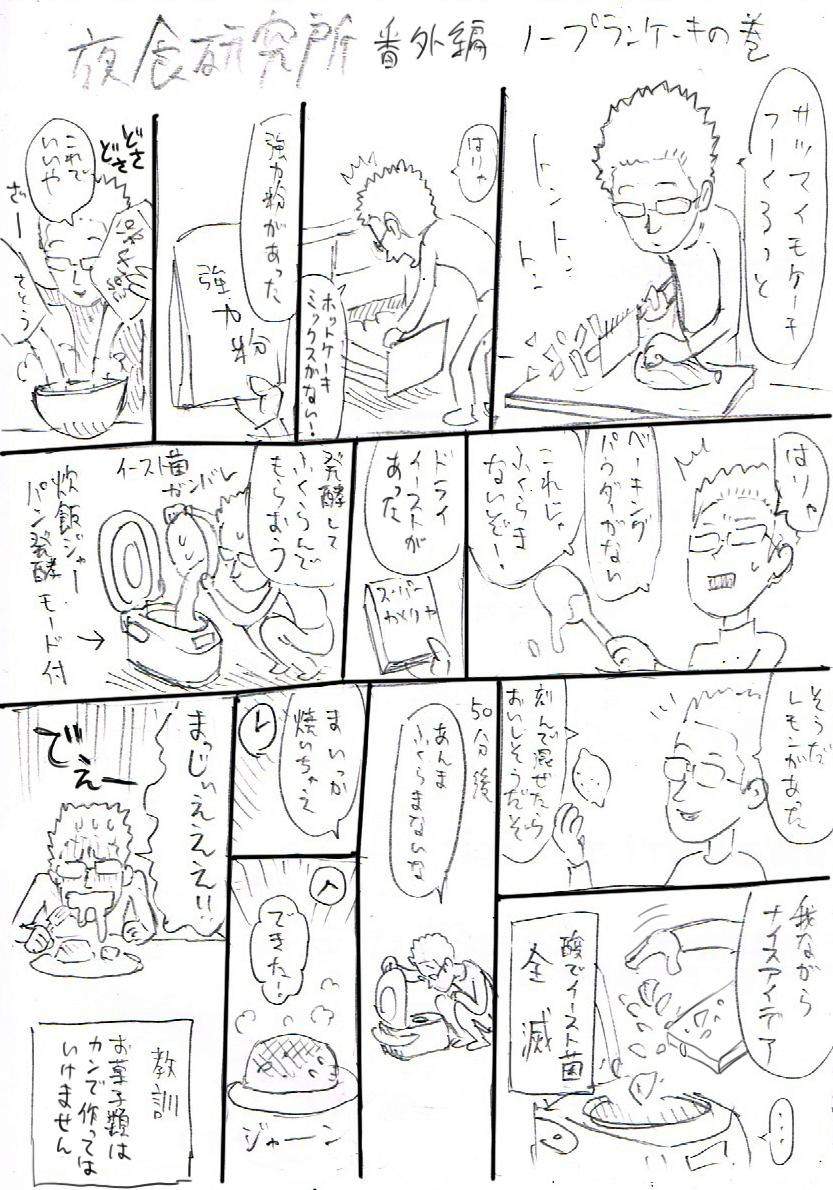 放食研究所 番外編 ノープランケーキの巻
サツマイモケーキ
つーくろっと
トントン
トントン
はりゃ
ホットケーキ
ミックスがない!
強力粉があった
強力粉
どさ
どさ
これで
いいや
ざー
さとう
はりゃ
ベーキング
パウダーがない
これじゃ
ふくらま
ないぞ!
ドライ
イーストが
あった
スーパー
かくりや
発酵して
ふくらんで
もらおう
イースト菌
ガンバレ
炊飯ジャー
パン発酵モード付
そうだ
レモンがあった
刻んで混ぜたら
おいしそうだぞ
我ながら
ナイスアイデア
酸でイースト菌
全滅
…
50分後
あんま
ふくらまないな
まいっか
焼いちゃえ
できた!
ジャーン
まっじぃえええ!!
でぇー
教訓
お菓子類は
カンで作っては
いけません